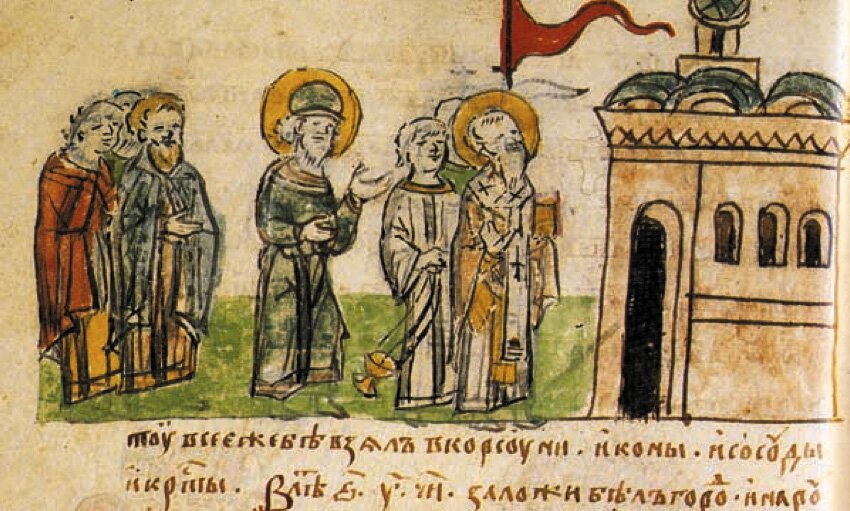 тоу все еже бѣ взялъ в корсоуни . иконы . и сосоуды
и крⷭ҇ты . В лѣⷮ ҂ѕ҃ . у҃ . чи҃ . заложи бѣлъгороⷣ . и наро